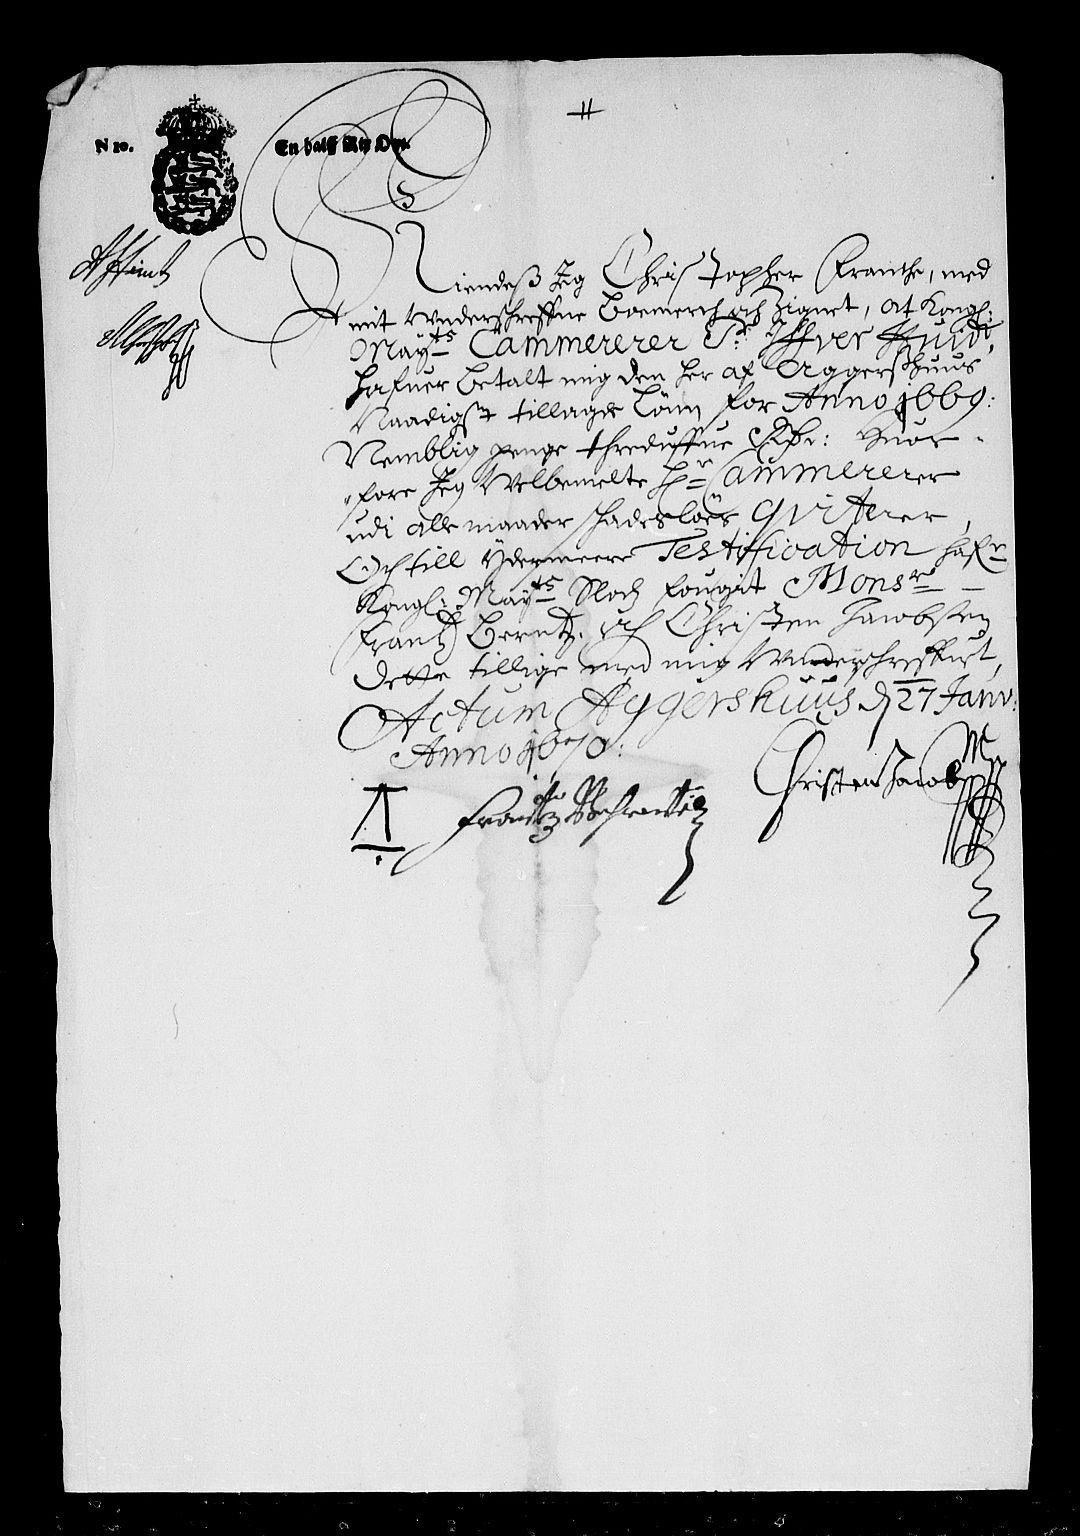 N 10.
En halff Rix Ort.
Kiendeß Jeg Christopher Franche, med
mit Underschreffne Boemerch och Zignet, at Kongl:
Mayts Cammererer Sr: Iffver Huid,
hafuer betalt mig den her af Aggershuus
Naadigst tillagde Lönn for Anno 1669:
Nemblig penge threduffue Rdr: Huor-
fore Jeg Velbemelte Hr Cammererer
udi alle maader schadesløes qviterer,
Och till ydermeere Testification hafr
Kongl: Mayts Slods fougit Monsr
Frantz Berntz. och Christen Jacobsen
dette tillige med mig Underschreffuet,
Actum Aggershuus d 27 Janv:
Anno 1670:
Christen Jacobs
Frantz Behrentz